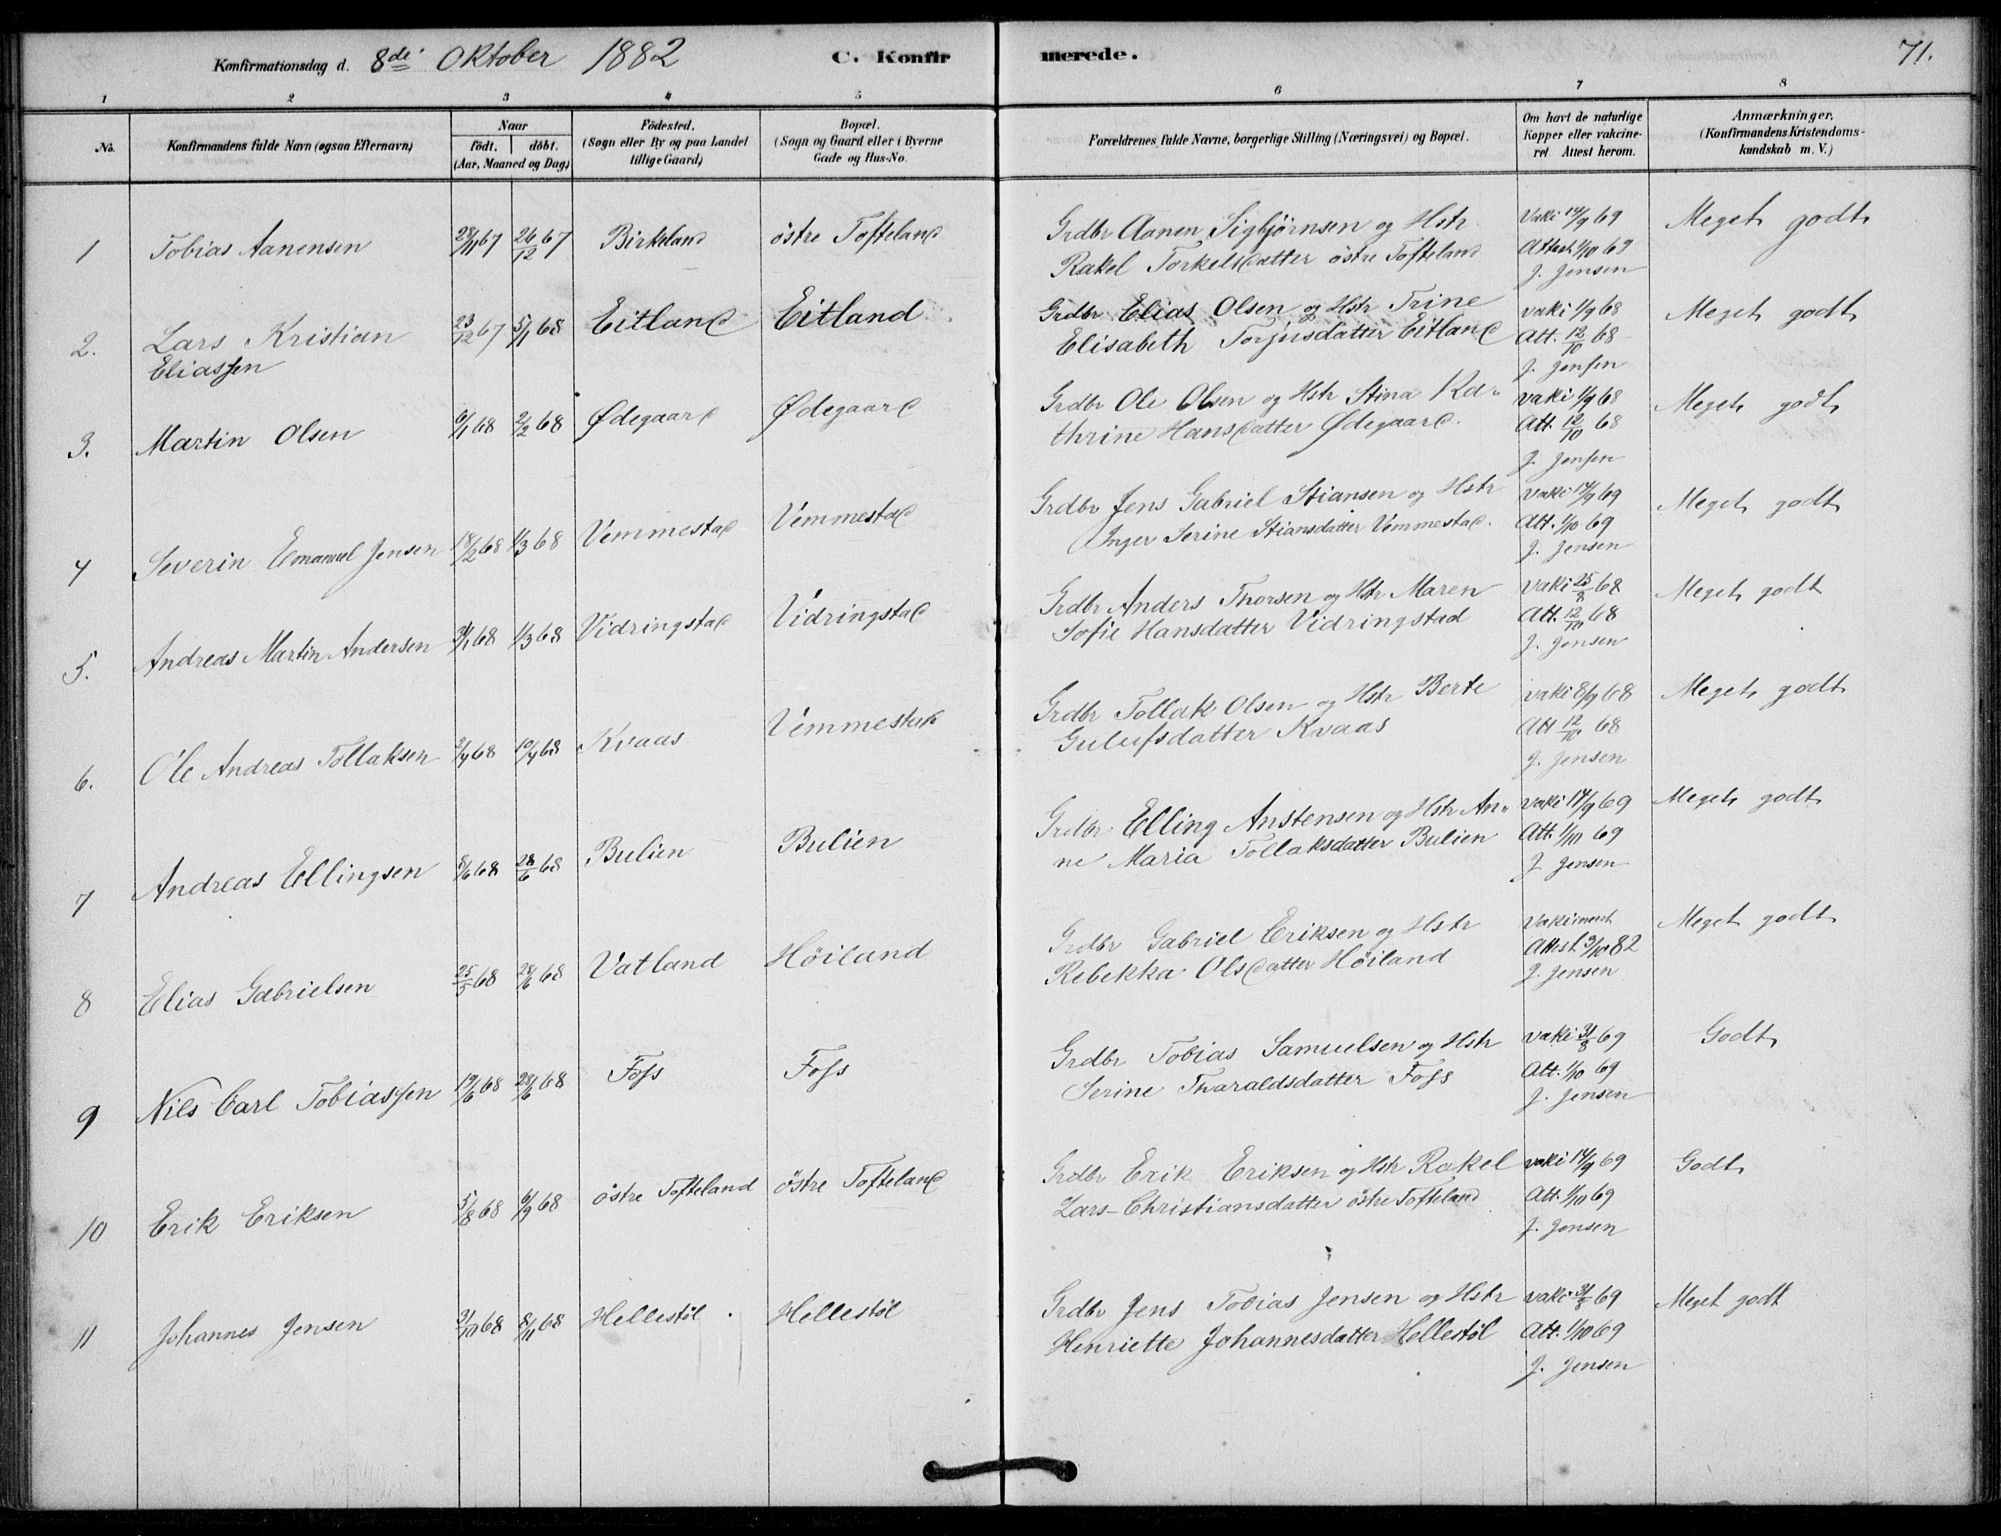 Konfirmationsdag d. 8de Oktober 1882 C. Konfirmerede. 71.
1 2 3 4 5 6 7 8
No. Konfirmandens fulde Navn (ogsaa Efternavn) Naar födt. döbt. (Aar, Maaned og Dag) Födested. (Sogn eller By og paa Landet tillige Gaard) Bopæl. (Sogn og Gaard eller i Byerne Gade og Hus-No. Forældrenes fulde Navne, borgerlige Stilling (Næringsvei) og Bopæl. Om havt de naturlige Kopper eller vakcineret Attest herom. Anmærkninger. (Konfirmandens Kristendomskundskab m. V.)
1 Tobias Aanensen 28/11 67 26/12 67 Birkeland östre Tofteland Grdbr Aanen Sigbjørnsen og Hstr Vaki 14/9 69 Meget godt
Rakel Torkelsdatter östre Tofteland Attest 1/10 69
J. Jensen
2. Lars Kristian 23/12 67 5/1 68 Eitland Eitland Grdbr Elias Olsen og Hstr Trine vaki 1/9 68 Meget godt
Eliassen Elisabeth Torjusdatter Eitland Att. 12/10 68
J. Jensen
3. Martin Olsen 6/1 68 2/2 68 Ødegaard Ødegaard Grdbr Ole Olsen og Hstr Stina Ka- vaki 1/9 68 Meget godt
thrine Hansdatter Ødegaard. Att. 12/10 68
J. Jensen
4 Severin Emanuel Jensen 18/2 68 1/3 68 Vemmestad Vemmestad Grdbr Jens Gabriel Stiansen og Hstr vaki 14/9 69 Meget godt
Inger Serine Stiansdatter Vemmestad. Att. 1/10 69
J. Jensen
5. Andreas Martin Andersen 31/1 68 1/3 68 Vidringstad Vidringstad Grdbr Anders Thorsen og Hstr Maren vaki 25/8 68 Meget godt
Sofie Hansdatter Vidringstad Att. 12/10 68
J. Jensen
6. Ole Andreas Tollaksen 2/4 68 10/4 68 Kvaas Vemmestad Grdbr Tollak Olsen og Hstr Berte vaki 8/9 68 Meget godt
Gulufsdatter Kvaas Att 12/10 68
J. Jensen
7 Andreas Ellingsen 8/6 68 28/6 68 Bulien Bulien Grdbr Elling Anstensen og Hstr An- vaki 14/9 69 Meget godt
ne Maria Tollaksdatter Bulien Att. 1/10 69
J. Jensen
8 Elias Gabrielsen 25/5 68 28/6 68 Vatland Höiland Grdbr Gabriel Eriksen og Hstr Meget godt
Rebekka Olsdatter Höiland Attest 3/10 82
J. Jensen
9 Nils Carl Tobiassen 19/6 68 28/6 68 Foss Foss Grdbr Tobias Samuelsen og Hstr vaki 31/8 69 Godt
Serine Tharaldsdatter Foss Att. 1/10 69
J. Jensen
10 Erik Eriksen 5/8 68 6/9 68 östre Tofteland östre Tofteland Grdbr Erik Eriksen og Hstr Rakel vaki 14/9 69 Godt
Lars-Christiansdatter östre Tofteland Att. 1/10 69
J. Jensen
11 Johannes Jensen 3/10 68 8/11 68 Hellestöl Hellestöl Grdbr Jens Tobias Jensen og Hstr vaki 31/8 69 Meget godt
Henriette Johannesdatter Hellestöl Att. 1/10 69
J. Jensen